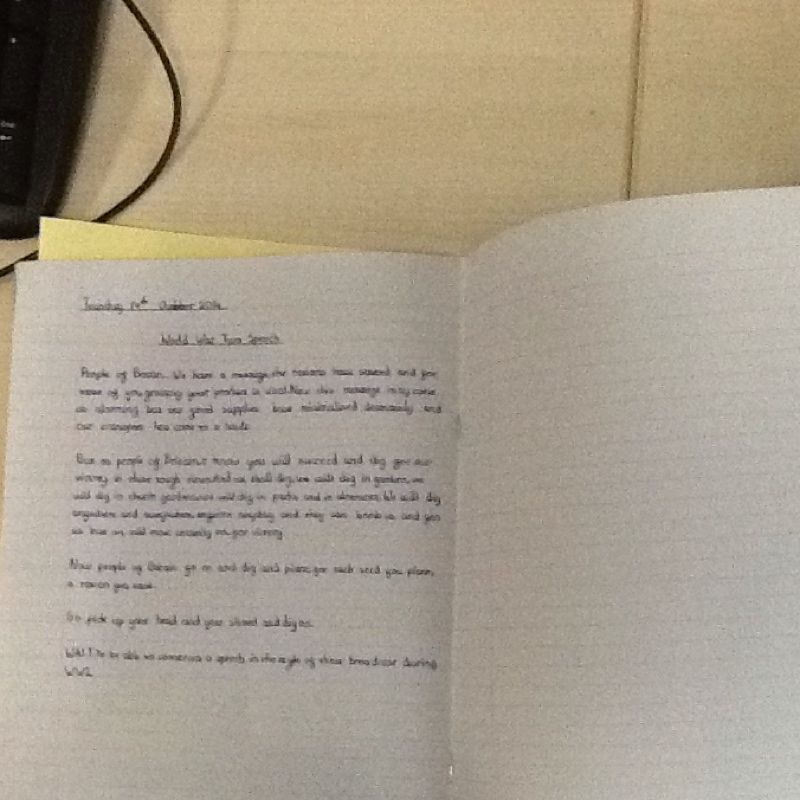 Tuesday 14th October 2014
World War Two Speech
People of Britain. We have a message the rations have started and for
some of you growing your produce is vital. Now this message may come
as alarming but our food supplies have minimalised immensely and
our transport has come to a halt.
But as people of Britain I know you will succeed and dig for our
victory in these tough times we shall dig, we will dig in gardens, we
will dig in church gardens we will dig in parks and in. We will dig
anywhere and everywhere, anytime anyday and they can bomb us and yes
us but we will most certainly dig for victory
Now people of Britain go on and dig and plant, for each seed you plant,
a ration you save.
So pick up your head and your shovel and dig on.
Walt: To be able to a speech in the style of those broadcast during
WW2.